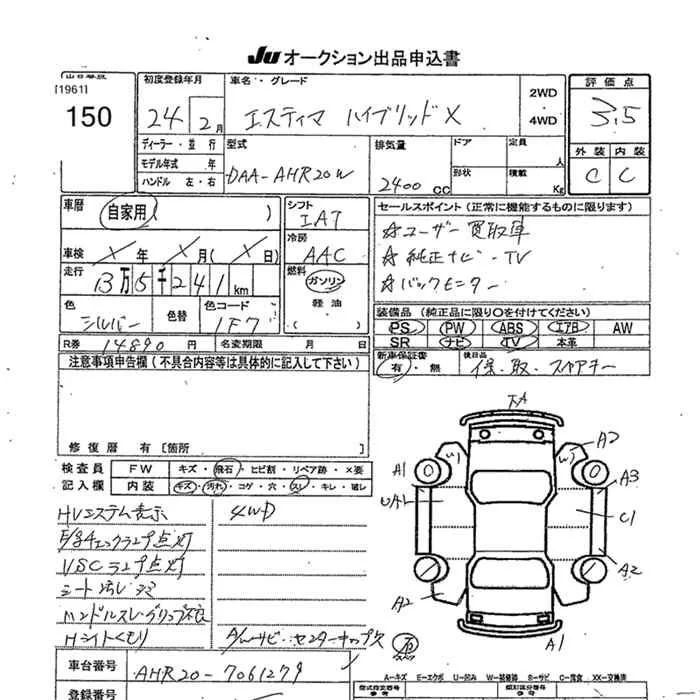 Ju オークション出品申込書
[1961]
150
初度登録年月
24年 2月
車名・グレード
エスティマ ハイブリッドX
2WD
4WD
評価点
3.5
外装 内装
C C
ディーラー・並行
モデル年式 年
ハンドル 左・右
型式
DAA-AHR20W
排気量
2400 CC
ドア
形状
定員 人
積載 Kg
車歴 自家用( )
シフト
IA7
セールスポイント(正常に機能するものに限ります)
☆ユーザー買取車
☆純正ナビ・TV
☆バックモニター
車検 X年 X月(X日)
冷房
AAC
走行 13万5千241km
燃料
ガソリン
軽油
( )
色
シルバー
色替
色コード
1F7
装備品(純正品に限り○を付けてください)
PS PW ABS エアB AW
SR ナビ TV 本革
R券 14890円 名変期限 月 日
新車保証書
有・無
後日品
保・取・スペアキー
注意事項申告欄(不具合内容等は具体的に記入して下さい)
修復歴 有[箇所 ]
検査員 FW キズ・飛石・ヒビ割・リペア跡・X要
記入欄 内装 キズ・汚れ・コゲ・穴・スレ・キレ・破レ
HVシステム表示
4WD
チェックランプ点灯
VSCランプ点灯
シート汚レ
ハンドルスレ・グリップ不良
Hライトくもり
センターキャップ欠
石
A2
A1
A3
UA1
C1
A2
A2
A1
W
W
車台番号
AHR20-7061279
登録番号
A-キズ E-エクボ U-凹み W-補修跡 S-サビ C-腐食 XX-交換済
型式指定番号
類別区分番号
参考
参考